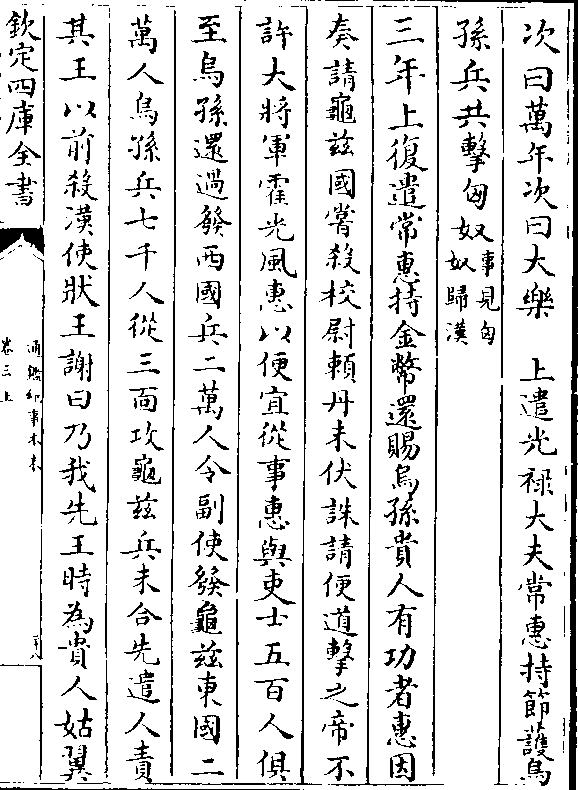 次曰萬年次曰大樂　上遣光禄大夫常惠持節護烏
孫兵共擊匈奴事見匈奴歸漢
三年上復遣常惠持金幣還賜烏孫貴人有功者惠因
奏請龜兹國嘗殺校尉頼丹未伏誅請便道擊之帝不
許大將軍霍光風惠以便宜從事惠與吏士五百人俱
至烏孫還過發西國兵二萬人令副使發龜兹東國二
萬人烏孫兵七千人從三面攻龜兹兵未合先遣人責
其王以前殺漢使狀王謝曰乃我先王時為貴人姑翼
欽定四庫全書
通鑑紀事本末
卷三上